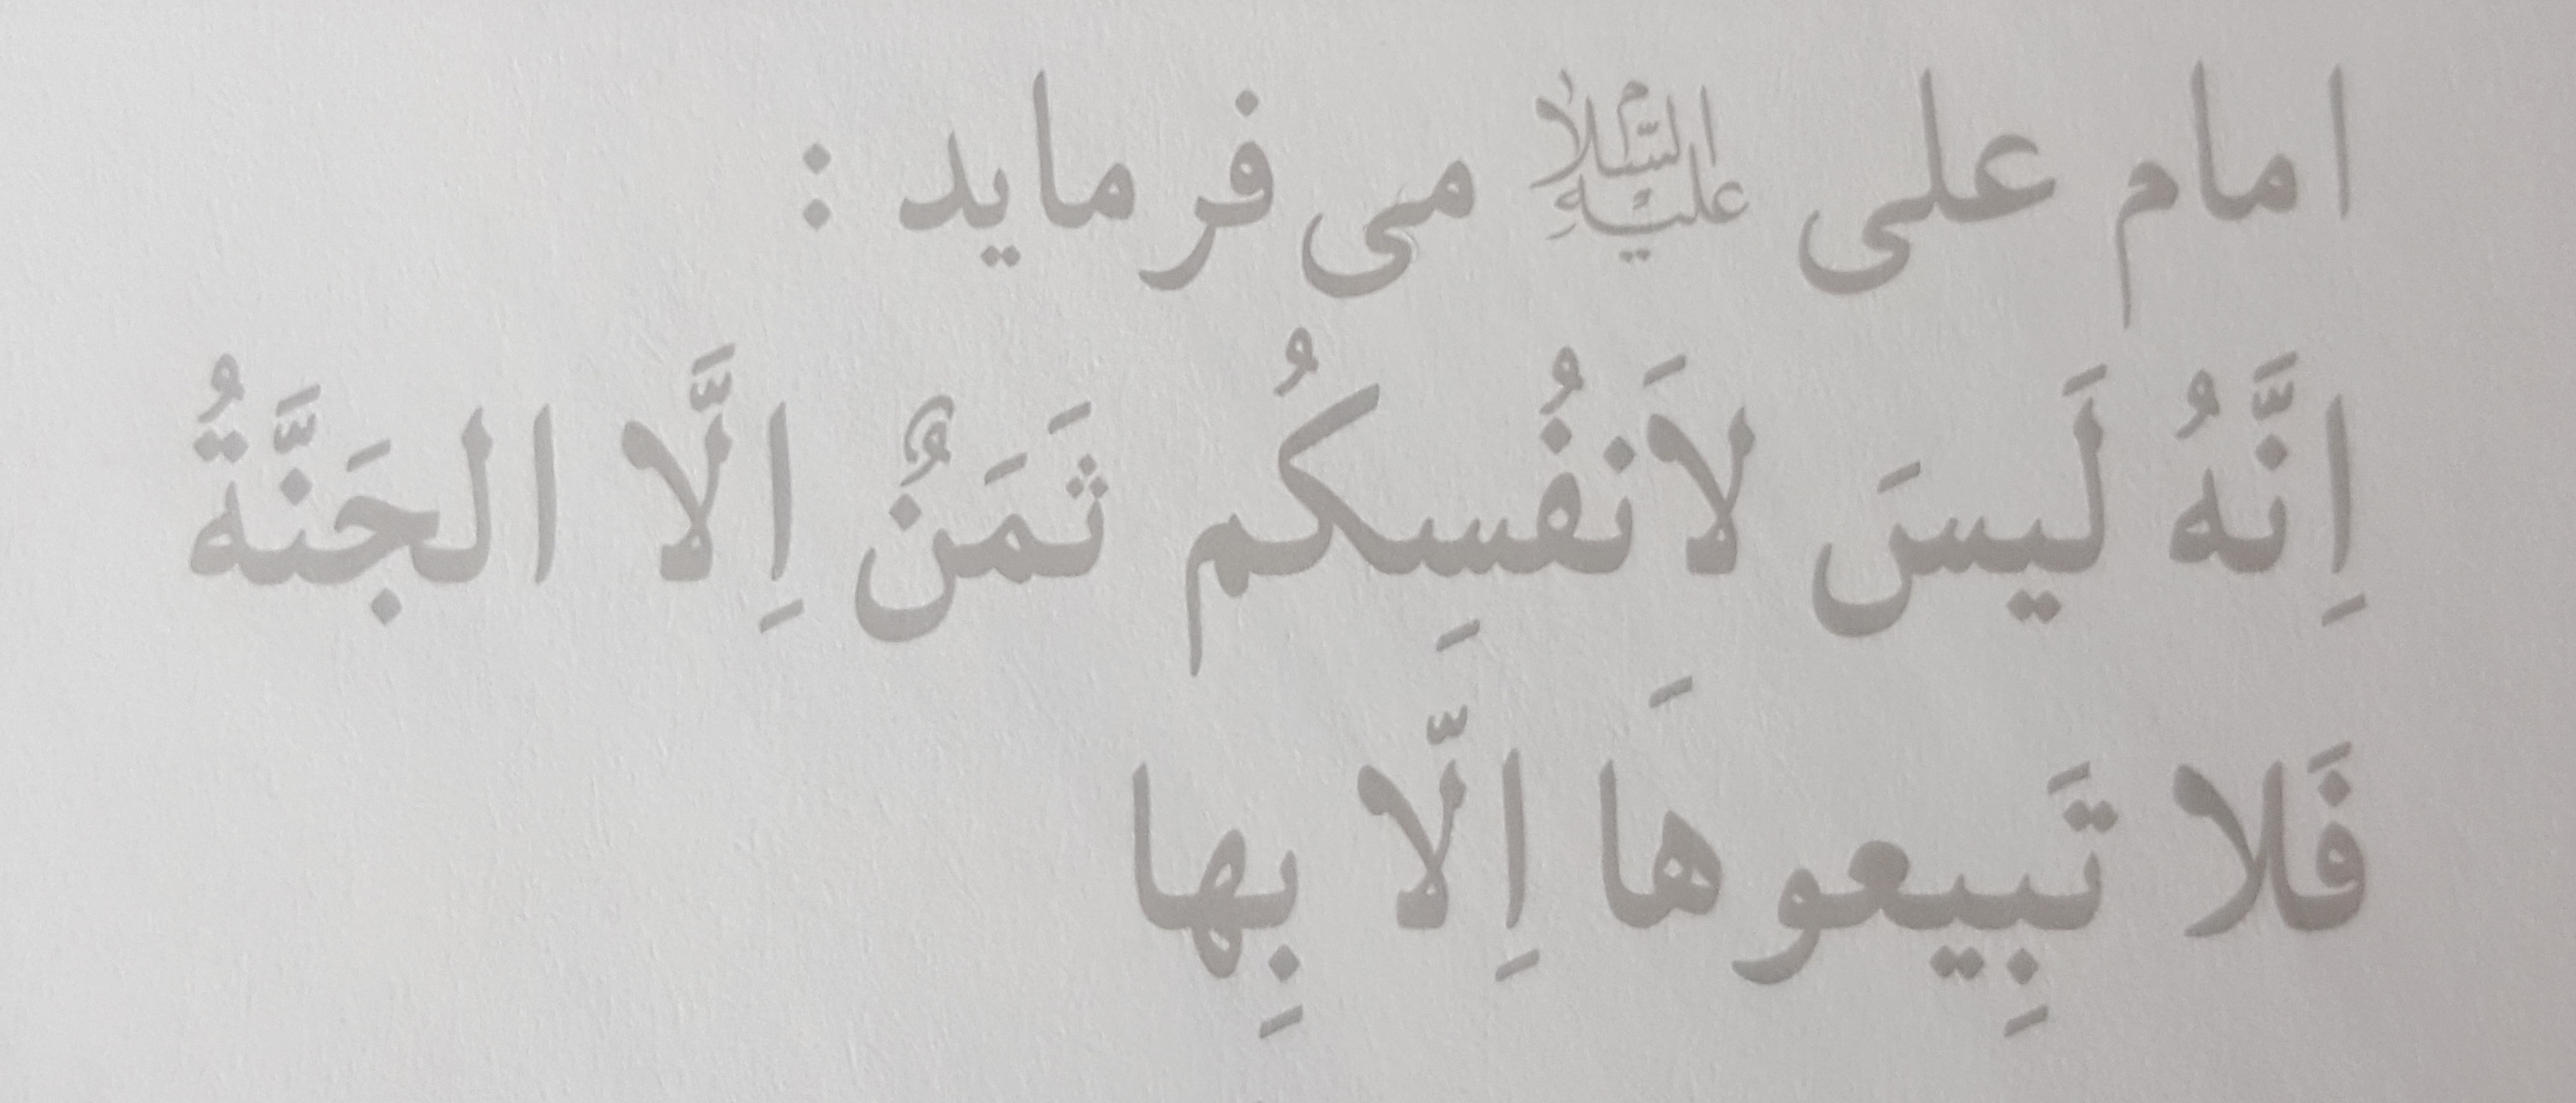 امام علی علیه‌السلام می‌فرماید :
اِنَّهُ لَیسَ لاَنفُسِکُم ثَمَنٌ اِلَّا الجَنَّةُ
فَلا تَبِیعوهَا اِلَّا بِها